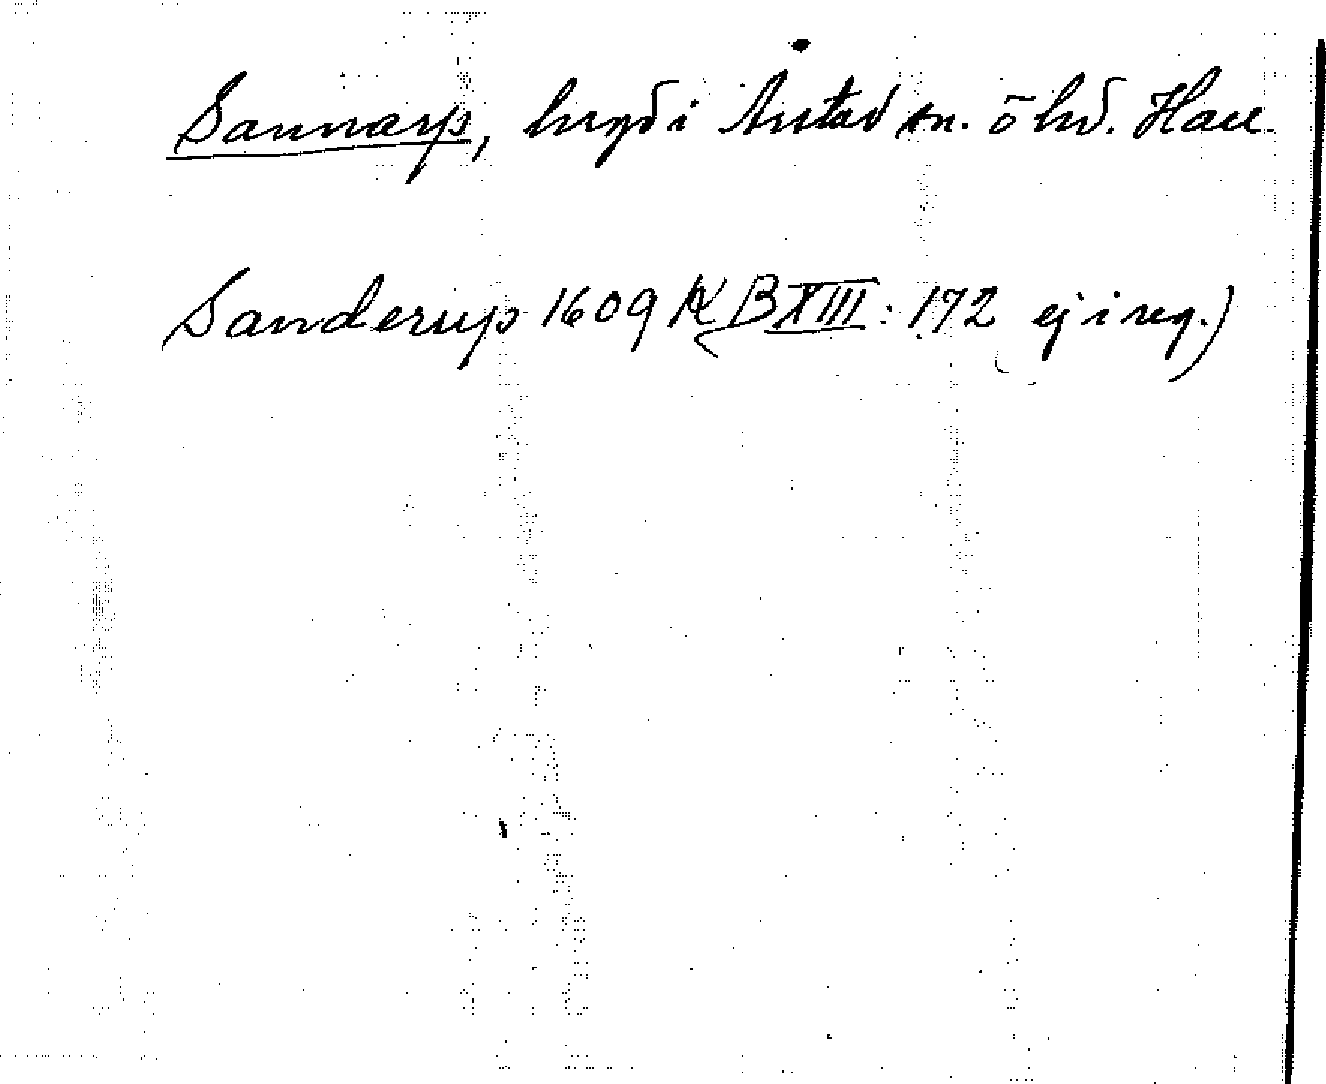 Sannarp, bygd i Årstad sn. õ hd. Hall.
Sanderup 1609 (KB XIII: 172 ej i reg.)